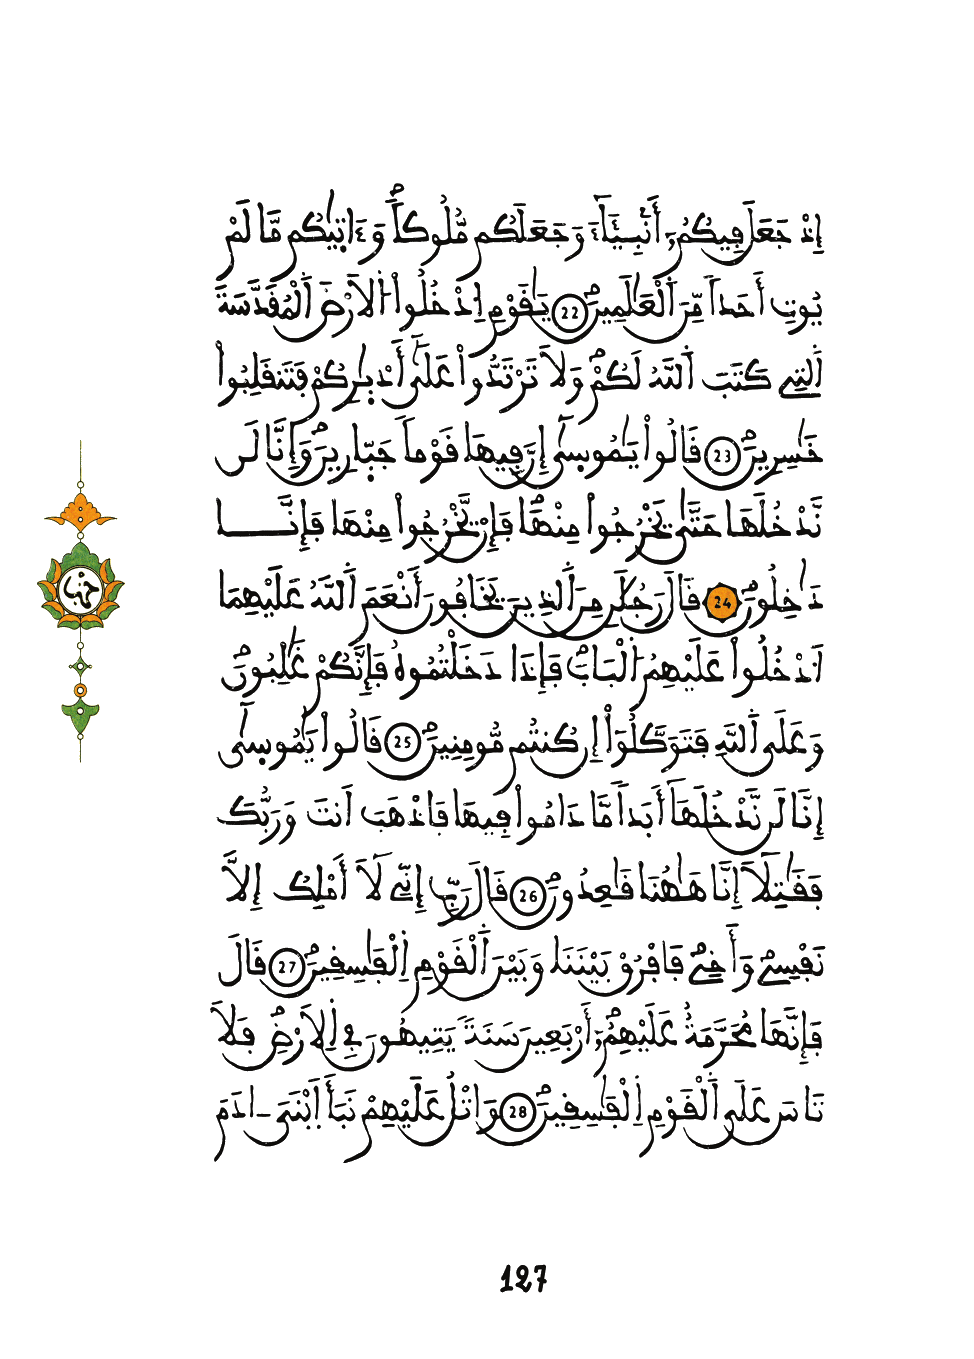 إِذْ جَعَلَ فِيكُمُۥٓ أَنۢبِـئَآءَ وَجَعَلَكُم مُّلُوكاٗۖ وَءَاتٜيٰكُم مَّا لَمْ
يُوتِ أَحَداٗ مِّنَ اَ۬لْعَٰلَمِينَۖ 22 يَٰقَوْمِ اِ۟دْخُلُواْ اُ۬لَارْضَ اَ۬لْمُقَدَّسَةَ
اَ۬لتِے كَتَبَ اَ۬للَّهُ لَكُمْۖ وَلَا تَرْتَدُّواْ عَلَىٰٓ أَدْبٰ۪رِكُمْ فَتَنقَلِبُواْ
خَٰسِرِينَۖ 23 قَالُواْ يَٰمُوسٜىٰٓ إِنَّ فِيهَا قَوْماٗ جَبّ۪ارِينَۖ وَإِنَّا لَن
نَّدْخُلَهَا حَتَّىٰ يَخْرُجُواْ مِنْهَاۖ فَإِنْ يَّخْرُجُواْ مِنْهَا فَإِنَّا
دَٰخِلُونَۖ 24 قَالَ رَجُلَٰنِ مِنَ اَ۬لذِينَ يَخَافُونَ أَنْعَمَ اَ۬للَّهُ عَلَيْهِمَا
اَ۟دْخُلُواْ عَلَيْهِمُ اُ۬لْبَابَۖ فَإِذَا دَخَلْتُمُوهُ فَإِنَّكُمْ غَٰلِبُونَۖ
وَعَلَى اَ۬للَّهِ فَتَوَكَّلُوٓاْ إِن كُنتُم مُّومِنِينَۖ 25 قَالُواْ يَٰمُوسٜىٰٓ
إِنَّا لَن نَّدْخُلَهَآ أَبَداٗ مَّا دَامُواْ فِيهَا فَاذْهَبَ اَنتَ وَرَبُّكَ
فَقَٰتِلَآ إِنَّا هَٰهُنَا قَٰعِدُونَۖ 26 قَالَ رَبِّ إِنِّے لَآ أَمْلِكُ إِلَّا
نَفْسِے وَأَخِےۖ فَافْرُقْ بَيْنَنَا وَبَيْنَ اَ۬لْقَوْمِ اِ۬لْفَٰسِقِينَۖ 27 قَالَ
فَإِنَّهَا مُحَرَّمَةٌ عَلَيْهِمُۥٓۖ أَرْبَعِينَ سَنَةٗ يَتِيهُونَ فِے اِ۬لَارْضِۖ فَلَا
تَاسَ عَلَى اَ۬لْقَوْمِ اِ۬لْفَٰسِقِينَۖ 28 وَاتْلُ عَلَيْهِمْ نَبَأَ اَ۪بْنَيَ ءَادَمَ
حزب
127